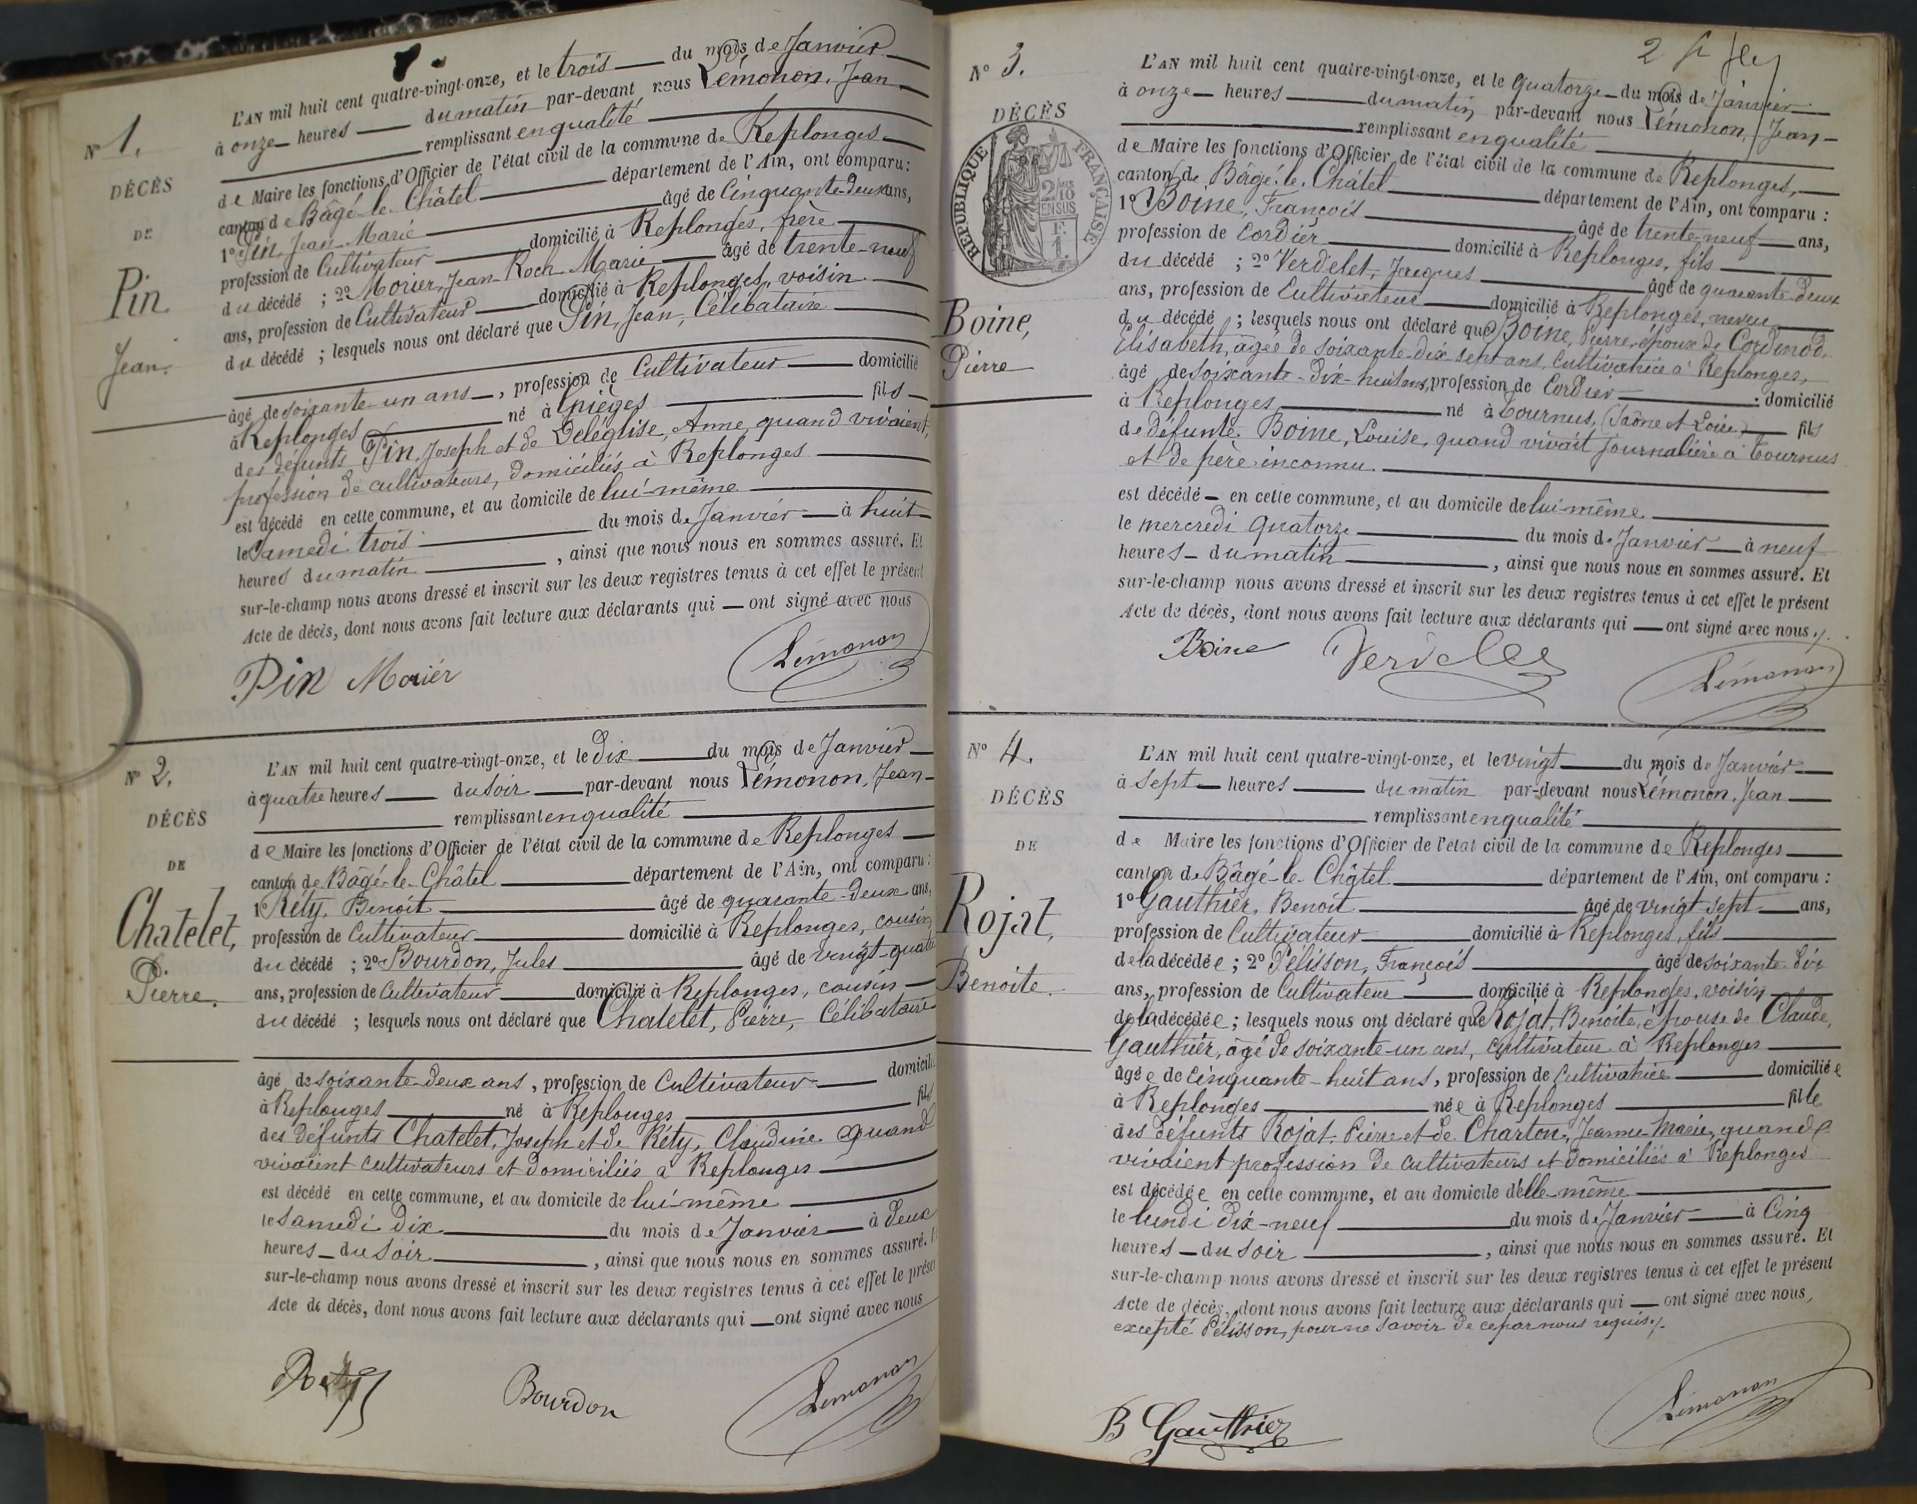 N° 1.
DÉCÈS
DE
Pin
Jean.
L'AN mil huit cent quatre-vingt-onze, et le trois du mois de Janvier
à onze heures du matin par-devant nous Lémonon, Jean
remplissant en qualité
de Maire les fonctions d'Officier de l'état civil de la commune de Replonges
canton de Bâgé-le-Châtel département de l'Ain, ont comparu :
1° Pin Jean-Marie âgé de Cinquante-deux ans,
profession de Cultivateur domicilié à Replonges, frère
du décédé ; 2° Morier, Jean-Roch-Marie âgé de trente-neuf
ans, profession de Cultivateur domicilié à Replonges, voisin
du décédé ; lesquels nous ont déclaré que Pin, Jean, Célibataire
âgé de soixante-un ans, profession de Cultivateur domicilié
à Replonges né à Grièges fils
des défunts Pin, Joseph et de Deléglise, Anne, quand vivaient,
profession de cultivateurs, domiciliés à Replonges
est décédé en cette commune, et au domicile de lui-même
le Samedi trois du mois de Janvier à huit
heures du matin, ainsi que nous nous en sommes assuré. Et
sur-le-champ nous avons dressé et inscrit sur les deux registres tenus à cet effet le présent
Acte de décès, dont nous avons fait lecture aux déclarants qui ont signé avec nous
Pin Morier Lémonon
N° 2.
DÉCÈS
DE
Chatelet,
Pierre.
L'AN mil huit cent quatre-vingt-onze, et le dix du mois de Janvier
à quatre heures du soir par-devant nous Lémonon, Jean
remplissant en qualité
de Maire les fonctions d'Officier de l'état civil de la commune de Replonges
canton de Bâgé-le-Châtel département de l'Ain, ont comparu :
1° Réty, Benoit âgé de quarante-deux ans,
profession de Cultivateur domicilié à Replonges, cousin
du décédé ; 2° Bourdon, Jules âgé de vingt-quatre
ans, profession de Cultivateur domicilié à Replonges, cousin
du décédé ; lesquels nous ont déclaré que Chatelet, Pierre, Célibataire
âgé de soixante-deux ans, profession de Cultivateur domicilié
à Replonges né à Replonges fils
des défunts Chatelet, Joseph et de Réty, Claudine quand
vivaient cultivateurs et domiciliés à Replonges
est décédé en cette commune, et au domicile de lui-même
le Samedi dix du mois de Janvier à deux
heures du soir, ainsi que nous nous en sommes assuré.
sur-le-champ nous avons dressé et inscrit sur les deux registres tenus à cet effet le présent
Acte de décès, dont nous avons fait lecture aux déclarants qui ont signé avec nous
Bourdon Lémonon
N° 3.
DÉCÈS
RÉPUBLIQUE FRANÇAISE
Boine,
Pierre
L'AN mil huit cent quatre-vingt-onze, et le quatorze du mois de Janvier
à onze heures du matin par-devant nous Lémonon, Jean
remplissant en qualité
de Maire les fonctions d'Officier de l'état civil de la commune de Replonges,
canton de Bâgé-le-Châtel département de l'Ain, ont comparu :
1° Boine, François âgé de trente-neuf ans,
profession de Cordier domicilié à Replonges, fils
du décédé ; 2° Verdelet, Jacques âgé de quarante-deux
ans, profession de Cultivateur domicilié à Replonges, neveu
du décédé ; lesquels nous ont déclaré que Boine, Pierre, époux de Cordinod
Elisabeth, âgée de soixante-dix-sept ans, cultivatrice à Replonges,
âgé de soixante-dix-huit ans, profession de Cordier domicilié
à Replonges né à Tournus, (Saône et Loire) fils
de défunte Boine, Louise, quand vivait journalière à Tournus
et de père inconnu.
est décédé en cette commune, et au domicile de lui-même
le mercredi quatorze du mois de Janvier à neuf
heures du matin, ainsi que nous nous en sommes assuré. Et
sur-le-champ nous avons dressé et inscrit sur les deux registres tenus à cet effet le présent
Acte de décès, dont nous avons fait lecture aux déclarants qui ont signé avec nous.
Boine Verdelet Lémonon
N° 4.
DÉCÈS
DE
Rojat,
Benoite.
L'AN mil huit cent quatre-vingt-onze, et le vingt du mois de Janvier
à sept heures du matin par-devant nous Lémonon, Jean
remplissant en qualité
de Maire les fonctions d'Officier de l'état civil de la commune de Replonges
canton de Bâgé-le-Châtel département de l'Ain, ont comparu :
1° Gauthier, Benoit âgé de vingt-sept ans,
profession de Cultivateur domicilié à Replonges, fils
de la décédée ; 2° Pélisson, François âgé de soixante-dix
ans, profession de Cultivateur domicilié à Replonges, voisin
de la décédée ; lesquels nous ont déclaré que Rojat, Benoite, épouse de Claude,
Gauthier, âgé de soixante-un ans, cultivateur à Replonges
âgée de cinquante-huit ans, profession de Cultivatrice domiciliée
à Replonges née à Replonges fille
des défunts Rojat, Pierre et de Charton, Jeanne-Marie, quand
vivaient profession de cultivateurs et domiciliés à Replonges
est décédée en cette commune, et au domicile d'elle-même
le lundi dix-neuf du mois de Janvier à Cinq
heures du soir, ainsi que nous nous en sommes assuré. Et
sur-le-champ nous avons dressé et inscrit sur les deux registres tenus à cet effet le présent
Acte de décès, dont nous avons fait lecture aux déclarants qui ont signé avec nous,
excepté Pélisson, pour ne savoir de ce par nous requis.
B Gauthier Lémonon